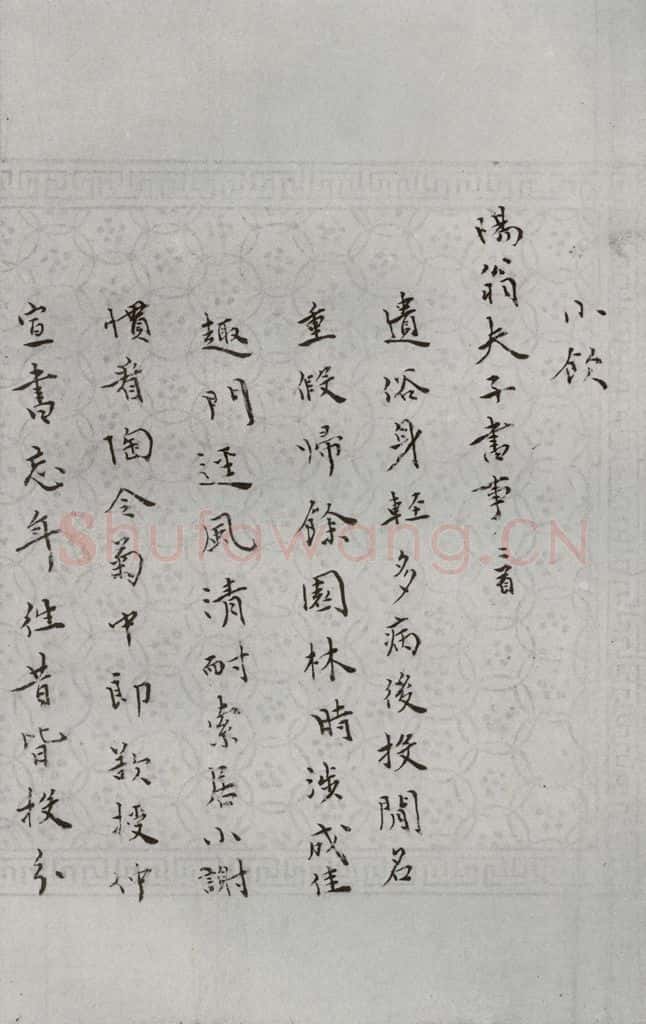 小飲
陽翁夫子書事二首
遺俗身輕多病後投閒名
重假歸餘園林時涉成佳
趣門逕風清耐索居小謝
慣看陶令菊中郎歎授仲
宣書忘年往昔皆投分
Shufawang.CN